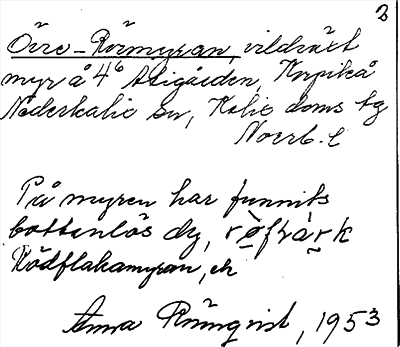 3
Övre-Rörmyran, vildväxt
myr å 4⁶ Stigården, Korpikå
Nederkalix sn, Kalix doms. tg
Norrb. l
På myren har funnits
bottenlös dy,
Rödflakamyran, ch
Anna Rönnqvist, 1953